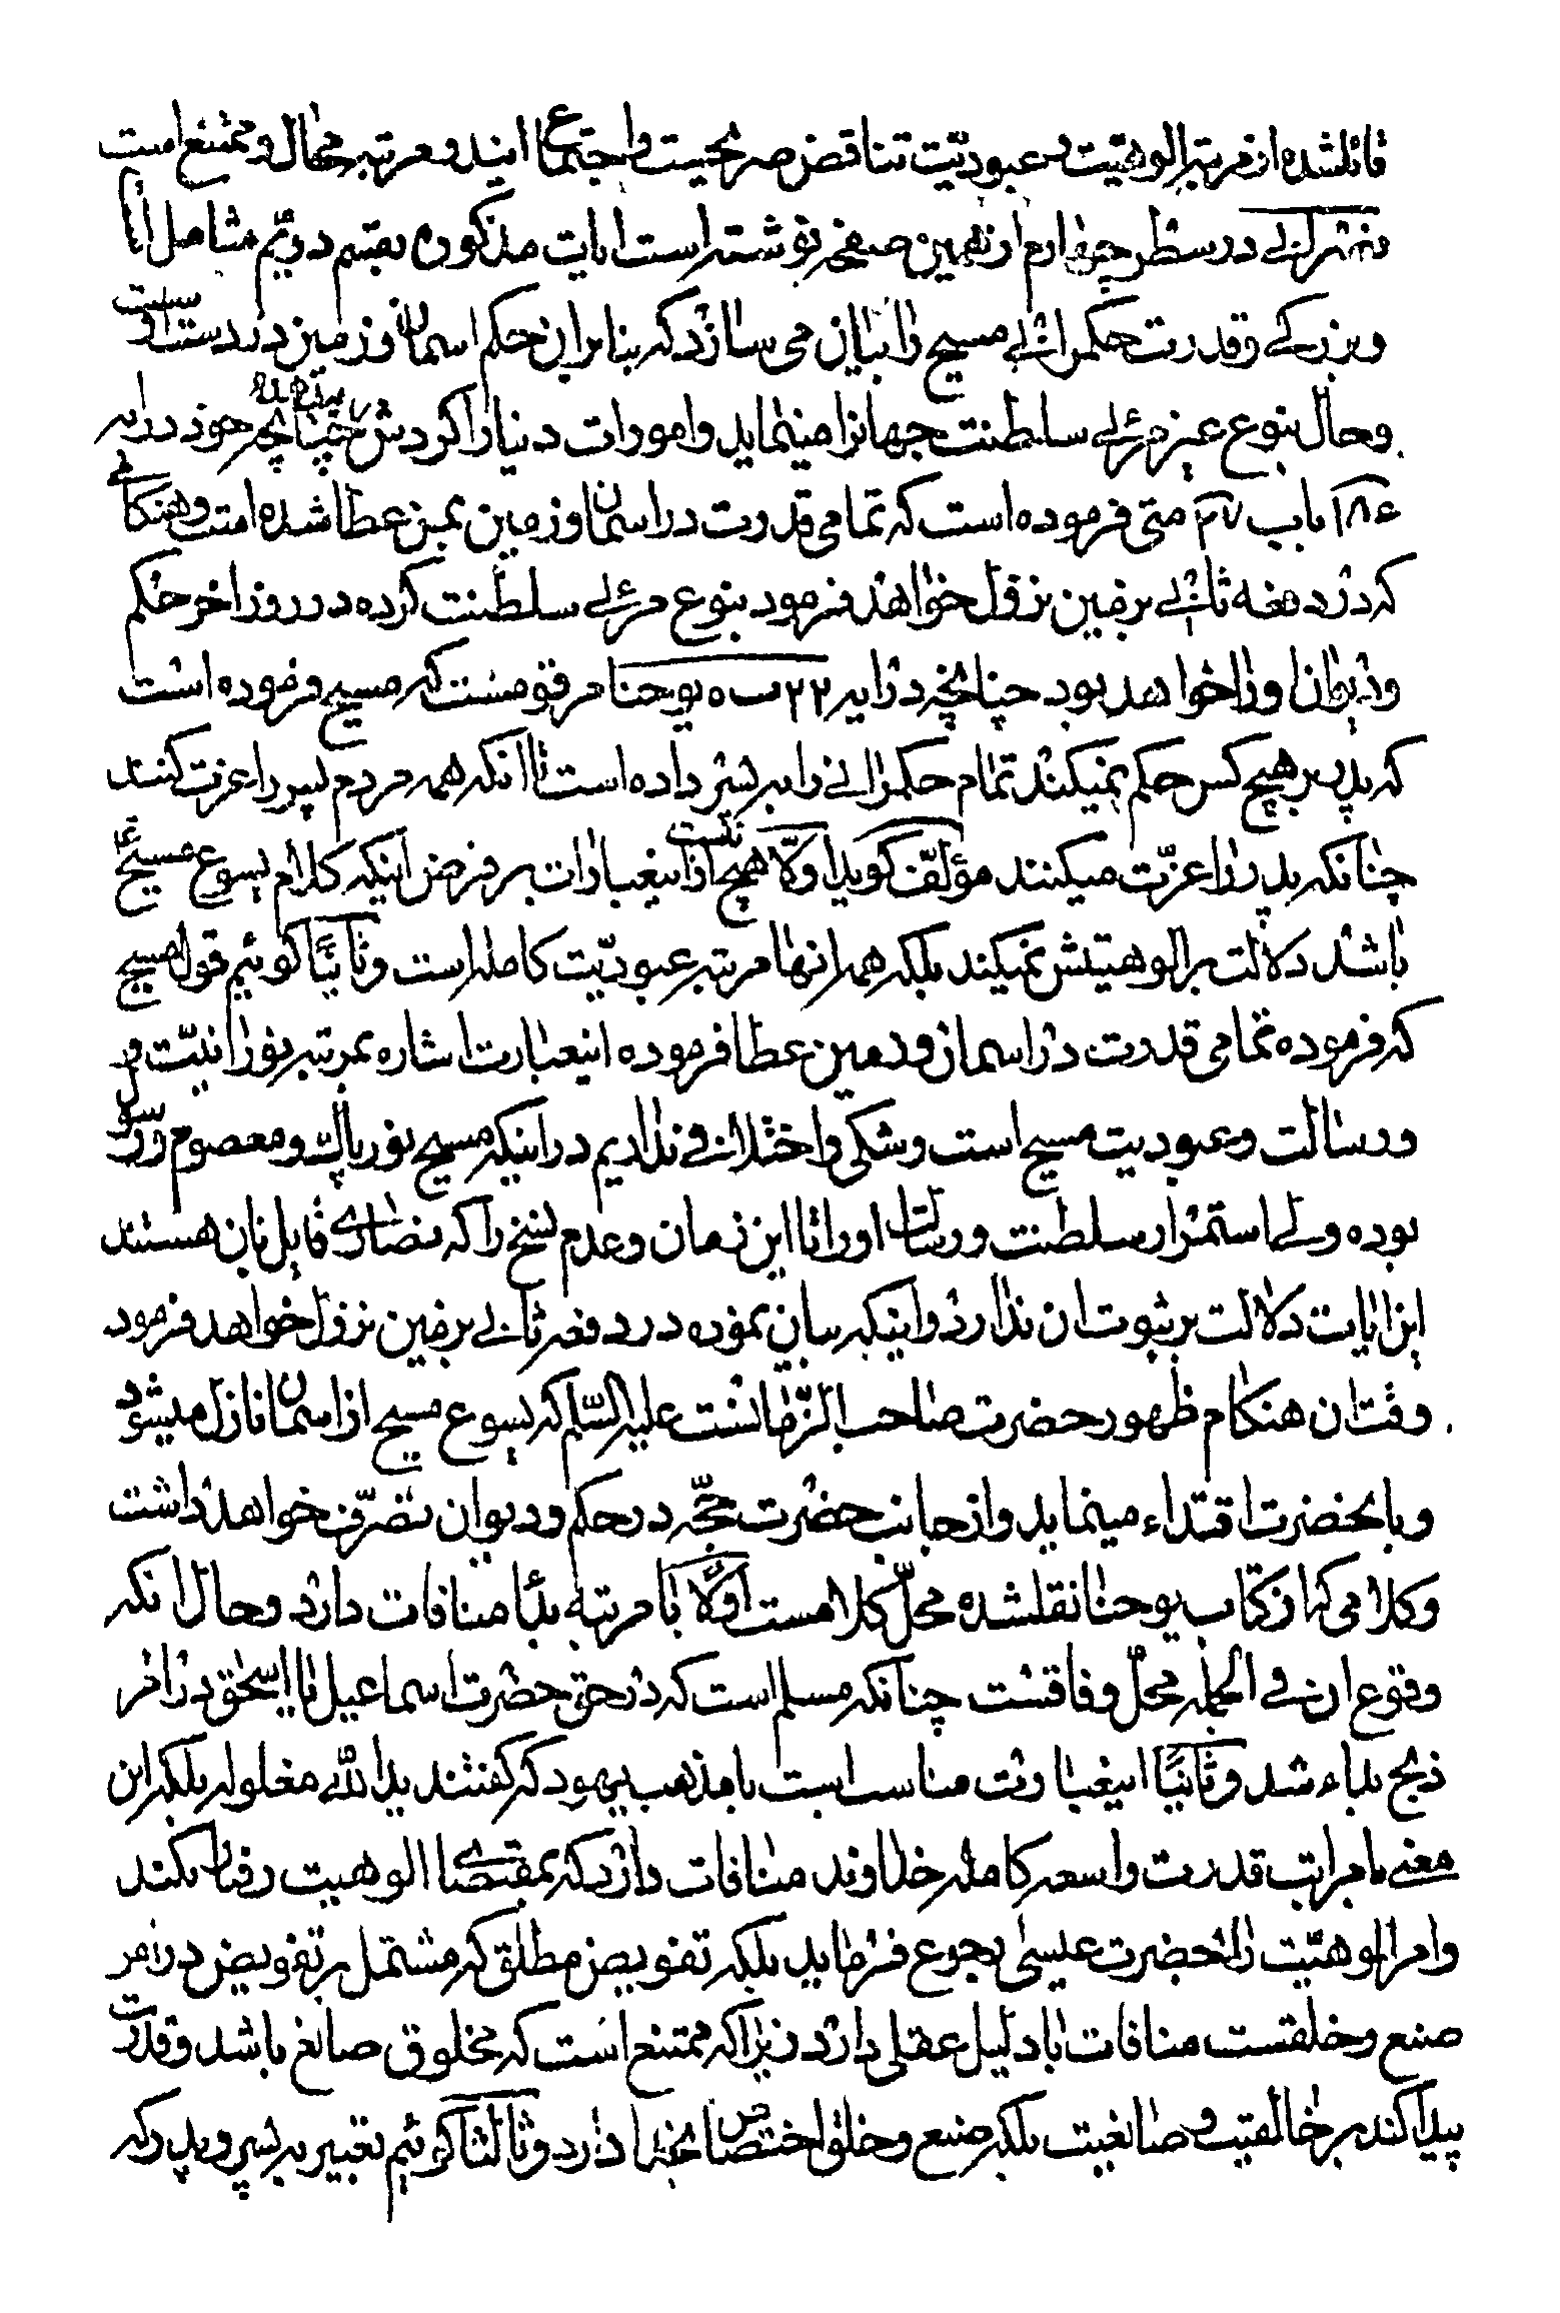 قائلشده از مرتبه الوهیت و عبودیّت تناقض صریحیست و اجتماع ایندو مرتبه محال و ممتنع است
در سطر چهارم از همین صفحه نوشته است ایات مذکوره بقسم دویّم شامل انا
و بزرکی و قدرت حکمرانی مسیح را بیان می سازد که بنابر ان حکم اسمان و زمین در دست اوست
و حال بنوع غیر مرئی سلطنت جهانرا مینماید و امورات دنیا را کردش چنانچه خود در ایه
۱۸ باب ۲۷ متی فرموده است که تمامی قدرت در اسمان و زمین بمن عطا شده است و هنکامی
که در دفعه ثانی بر زمین نزول خواهد فرمود بنوع مرئی سلطنت کرده در روز اخر حکم
و دیوان او را خواهد بود چنانچه در ایه ۲۲ ب ۵ یوحنا مرقومست که مسیح فرموده است
که پدر بر هیچ کس حکم نمیکند تمام حکمرانی را به پسر داده است تا انکه همه مردم پسر را عزت کنند
چنانکه پدر را عزّت میکنند مؤلف کوید اوّلا هیچ از اینعبارات بر فرض اینکه کلام یسوع مسیح ع
باشد دلالت بر الوهیتش نمیکند بلکه همه انها مرتبه عبودیّت کامله است و ثانیًا کوئیم قول مسیح
که فرموده تمامی قدرت در اسمان و زمین عطا فرموده اینعبارت اشاره بمرتبه نورانیّت و
و رسالت و عبودیت مسیح است و شکی و اختلافی نداریم در اینکه مسیح نور پاک و معصوم و رسول
بوده ولی استمرار سلطنت و رسالت او را تا این زمان و عدم نسخ را که نصاری قایل بان هستند
این ایات دلالت بر ثبوت ان ندارد و اینکه بیان نموده در دفعه ثانی بر زمین نزول خواهد فرمود
وقت ان هنکام ظهور حضرت صاحب الزّمانست علیه السّلم که یسوع مسیح از اسمان نازل میشود
و بانحضرت اقتداء مینماید و از جانب حضرت حجّه در حکم و دیوان تصرّف خواهد داشت
و کلامی که از کتاب یوحنا نقلشده محلّ کلامست اوّلا با مرتبه بدا منافات دارد و حال انکه
وقوع ان فی الجمله محلّ وفاقست چنانکه مسلم است که در حق حضرت اسماعیل یا اسحق در امر
ذبح بداء شد و ثانیًا اینعبارت مناسبست با مذهب یهود که کفتند ید الله مغلوله بلکه این
معنی با مراتب قدرت واسعه کامله خداوند منافات دارد که بمقتضای الوهیت رفتار نکند
و امر الوهیّت را بحضرت عیسی رجوع فرماید بلکه تفویض مطلق که مشتمل بر تفویض در امر
صنع و خلقتست منافات با دلیل عقلی دارد زیرا که ممتنع است که مخلوق صانع باشد و قدرت
پیدا کند بر خالقیت و صانعیت بلکه صنع و خلق اختصاص بخدا دارد و ثالثًا کوئیم تعبیر به پسر و پدر که